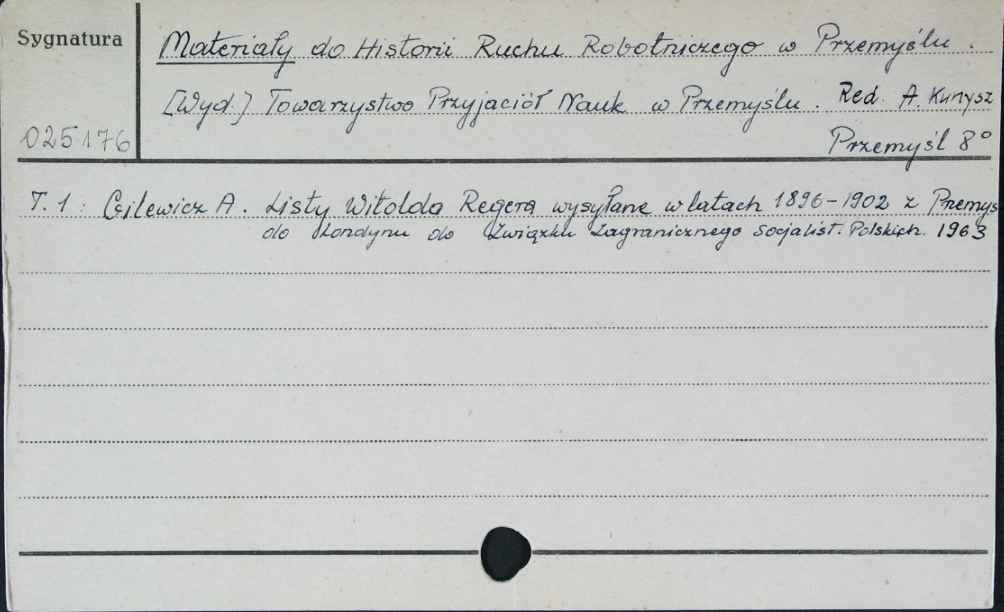 Sygnatura
Materiały do Historii Ruchu Robotniczego w Przemyślu.
[Wyd.] Towarzystwo Przyjaciół Nauk w Przemyślu. Red. A. Kunysz
025176
Przemyśl 8°
T. 1: Gilewicz A. Listy Witolda Regera wysyłane w latach 1896-1902 z Przemyś
do Londynu do Związku Zagranicznego Socjalist. Polskich. 1963